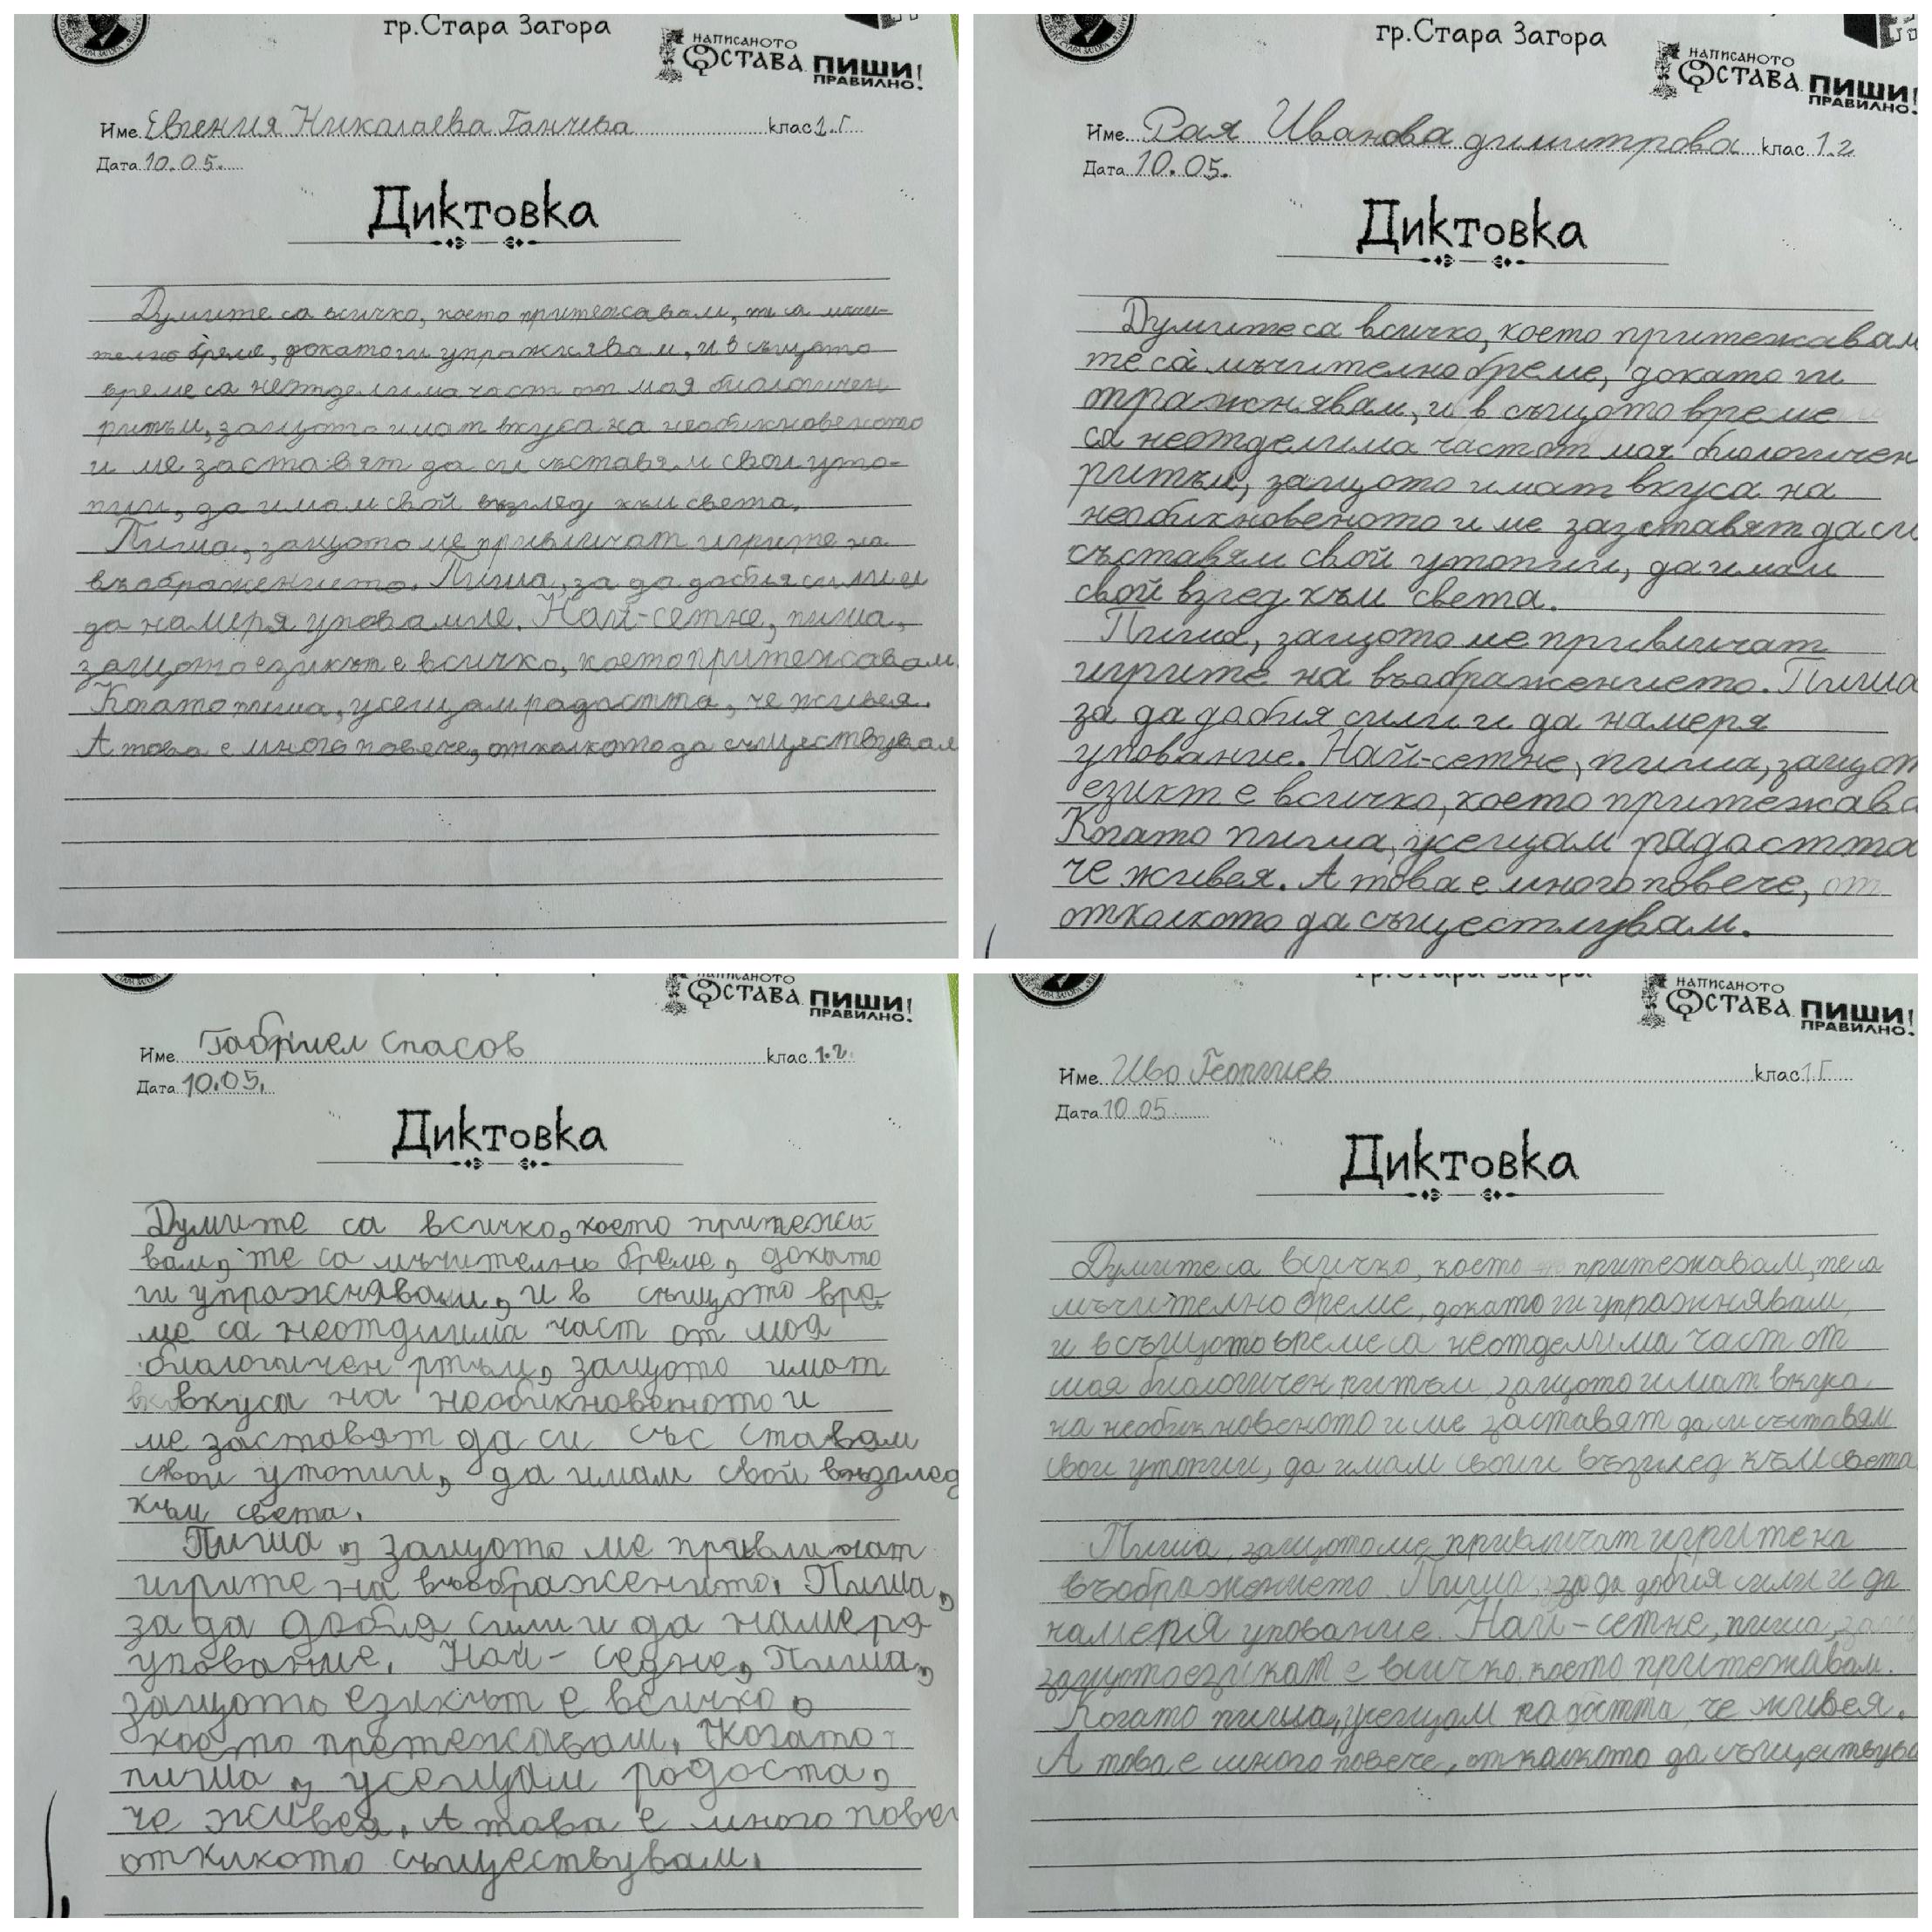 гр.Стара Загора
НАПИСАНОТО
ОСТАВА ПИШИ!
ПРАВИЛНО!
Име Евгения Николаева Ганчева клас 1.Г
Дата 10.05.
Диктовка
Думите са всичко, което притежавам, те са мъчи-
телно бреме, докато ги упражнявам, и в същото
време са неотделима част от моя биологичен
ритъм, защото имат вкуса на необикновеното
и ме заставят да си съставям свои уто-
пии, да имам свой възглед към света.
Пиша, защото ме привличат игрите на
въображението. Пиша, за да добия сили и
да намеря упование. Най-сетне, пиша,
защото езикът е всичко, което притежавам.
Когато пиша, усещам радостта, че живея.
А това е много повече, отколкото да съществувам
гр.Стара Загора
НАПИСАНОТО
ОСТАВА ПИШИ!
ПРАВИЛНО!
Име Рая Иванова димитрова клас 1.г
Дата 10.05.
Диктовка
Думите са всичко, което притежавам
те са мъчително бреме, докато ги
отражнявам, и в същото време
са неотделима част от моя биологичен
ритъм, защото имат вкуса на
необикновеното и ме зазставят да си
съставям свой утопии, да имам
свой взгед към света.
Пиша, защото ме привличат
игрите на въображението. Пиша
за да добия сили и да намеря
упование. Най-сетне, пиша, защот
езикт е всичко, което притежава
Когато пиша, усещам радостта
че живея. А това е много повече, от
отколкото да същестлувам.
НАПИСАНОТО
ОСТАВА ПИШИ!
ПРАВИЛНО!
Име Габриел Спасов клас 1.г.
Дата 10.05.
Диктовка
Думите са всичко, което притежа-
вам, те са мъчително бреме, докато
ги упражнявам, и в същото вре-
ме са неотдиима част от моя
биологичен ртъм, защото имат
вкуса на необикновеното и
ме заставят да си със ставям
свои утопии, да имам свой възглед
към света.
Пиша, защото ме привличат
игрите на въображението. Пиша,
за да добия сили и да намеря
упование. Най- седне, Пиша,
защото езикът е всичко,
което претежавам. Когато
пиша, усещам родоста,
че живея. А това е много повеч
откикото съществувам.
гр.Стара Загора
НАПИСАНОТО
ОСТАВА ПИШИ!
ПРАВИЛНО!
Име Иво Георгиев клас 1 Г
Дата 10 05
Диктовка
Думите са всичко, което притежавам, те са
мъчително бреме, докато ги упражнявам,
и в същото време са неотделима част от
моя биологичен ритъм, защото имат вкуса
на необикновеното и ме заставят да си съставям
свои утопии, да имам свои възглед към света
Пиша, защото ме привличат игрите на
въображението. Пиша, за да добия сили и да
намеря упование. Най-сетне, пиша,
защото езикат е всичко, което притежавам.
Когато пиша, усещам радостта, че живея.
А това е много повече, отколкото да съществува